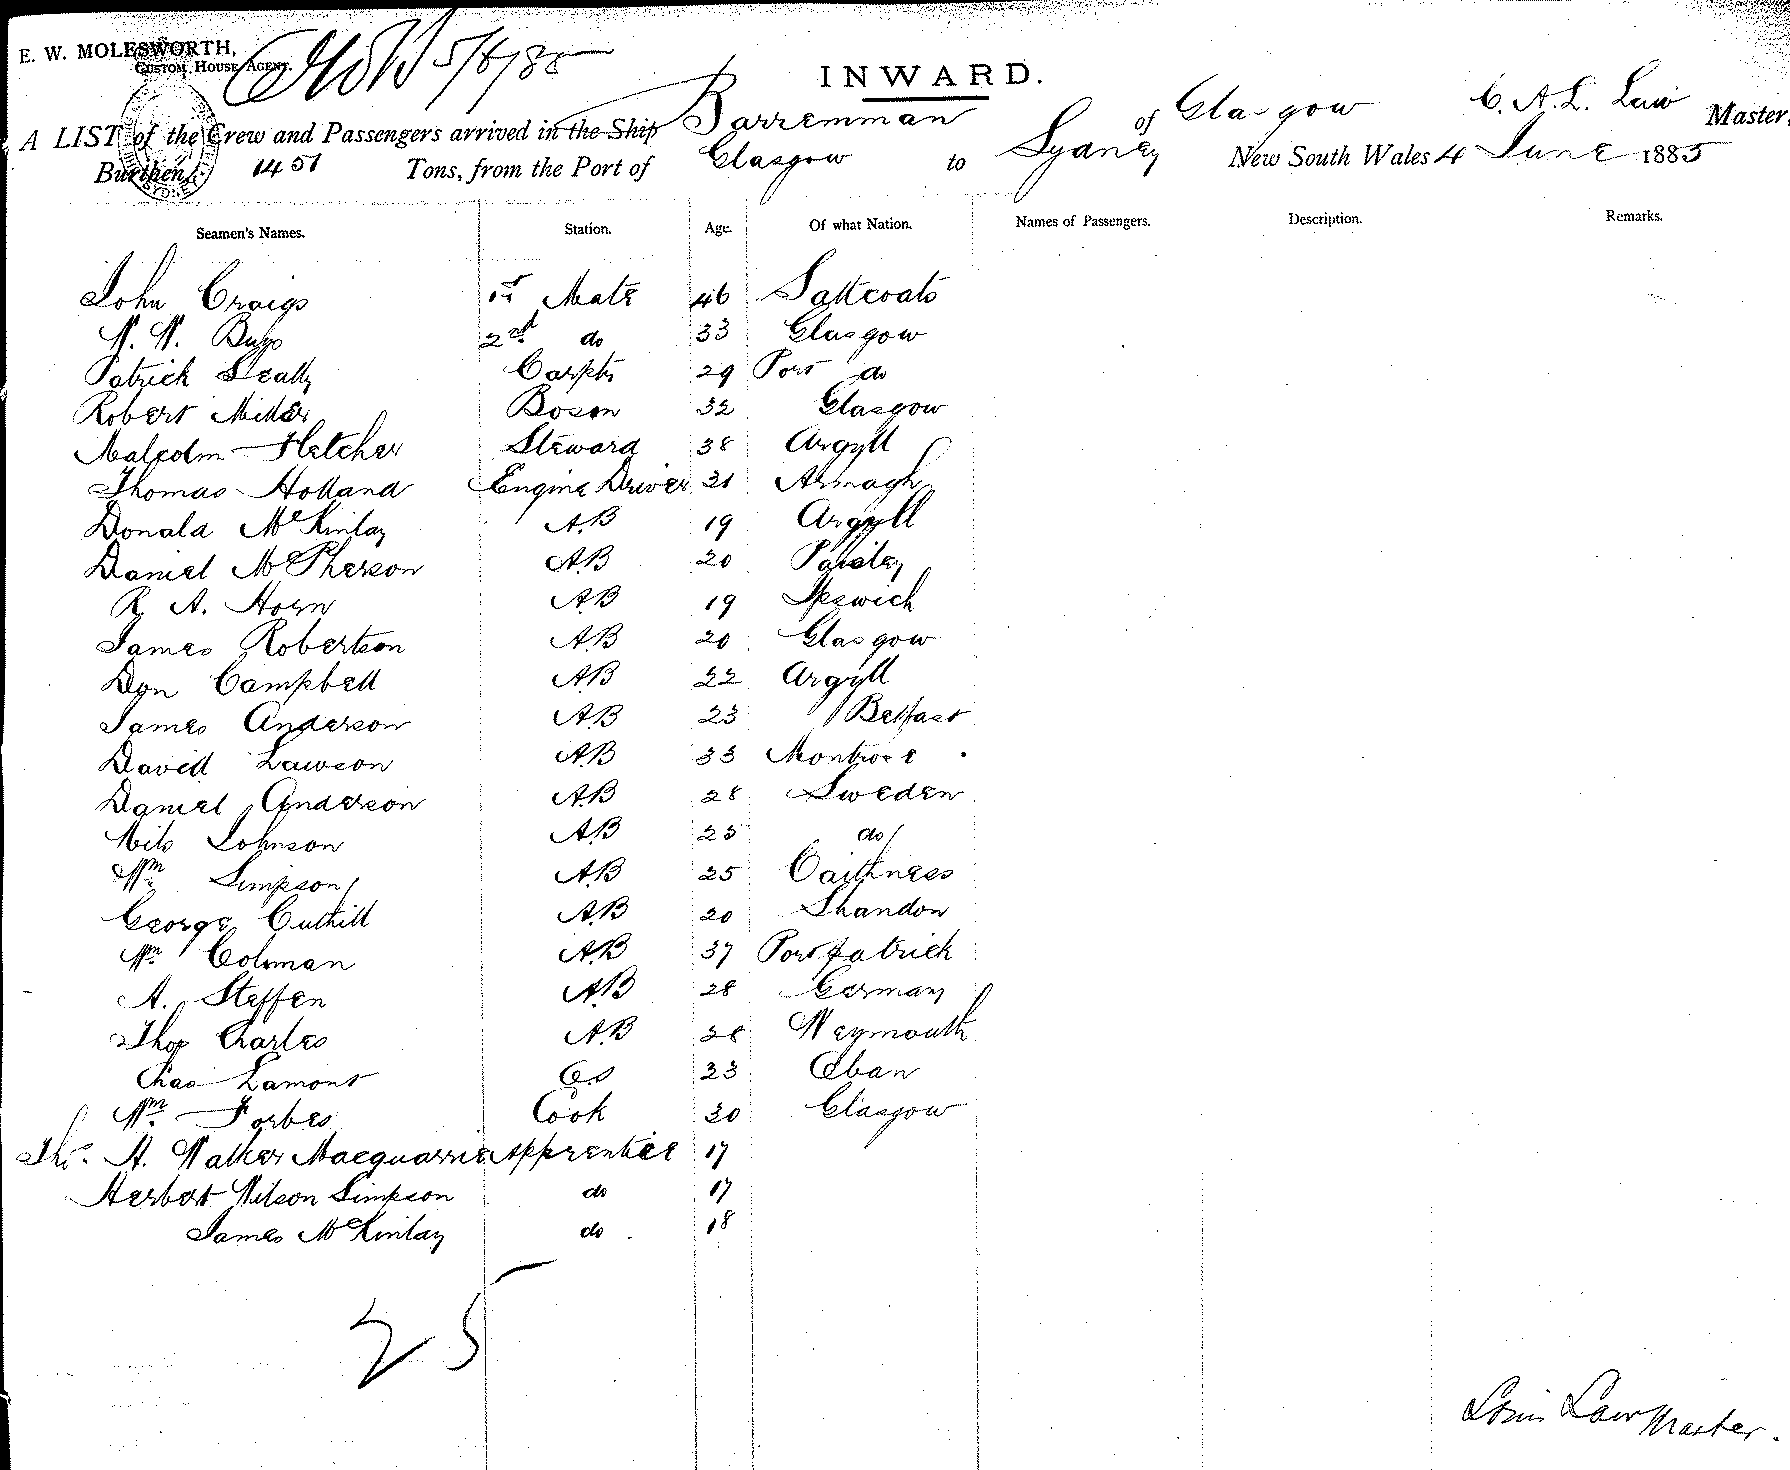 E. W. MOLESWORTH,
CUSTOM HOUSE AGENT.
5/6/85
INWARD.
A LIST of the Crew and Passengers arrived in the Ship Barremman of Glasgow C. A. L. Law Master,
Burthen 1451 Tons, from the Port of Glasgow to Sydney New South Wales 4 June 1885
Seamen's Names. Station. Age. Of what Nation. Names of Passengers. Description. Remarks.
John Craigs 1st Mate 46 Saltcoats
2nd do 33 Glasgow
Patrick Scally Carptr 29 Port do
Robert Miller Boson 32 Glasgow
Malcolm Fletcher Steward 38 Argyll
Thomas Holland Engine Driver 21 Armagh
Donald McKinlay A.B 19 Argyll
Daniel McPherson A.B 20 Paisley
R. A. Horn A.B 19 Ipswich
James Robertson A.B 20 Glasgow
Don Campbell A.B 22 Argyll
James Anderson A.B 23 Belfast
David Lawson A.B 33 Montrose
Daniel Anderson A.B 28 Sweden
Nils Johnson A.B 25 do
Wm Simpson A.B 25 Caithness
George Cuthill A.B 20 Shandon
Wm Colman A.B 37 Portpatrick
A. Steffen A.B 28 German
Thos Charles A.B 28 Weymouth
Chas Lamont OS 23 Oban
Wm Forbes Cook 30 Glasgow
Thos. A. Walker Macquarrie Apprentice 17
Herbert Wilson Simpson do 17
James McKinlay do 18
25
Louis Law Master.